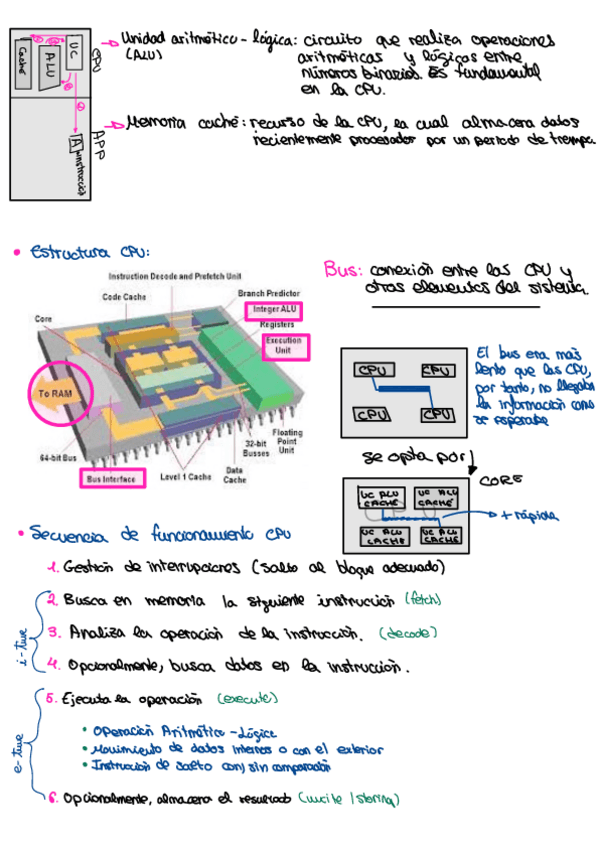 Caché
ALU
UC
CPU
APP
A
instrucción
Unidad aritmético-lógica: circuito que realiza operaciones
(ALU) aritméticas y lógicas entre
números binarios. Es fundamental
en la CPU.
Memoria caché: recurso de la CPU, la cual almacena datos
recientemente procesados por un periodo de tiempo.
• Estructura CPU:
Instruction Decode and Prefetch Unit
Code Cache
Branch Predictor
Integer ALU
Registers
Core
Execution
Unit
To RAM
64-bit Bus
Bus Interface
Level 1 Cache
Data
Cache
32-bit
Busses
Floating
Point
Unit
Bus: conexión entre las CPU y
otros elementos del sistema.
CPU CPU
CPU CPU
El bus era más
lento que las CPU,
por tanto, no llegaba
la información como
se esperaba
se opta por
CORE
UC ALU UC ALU
CACHÉ CACHÉ
CPU
UC ALU UC ALU
CACHÉ CACHÉ
+ rápida
• Secuencia de funcionamiento CPU
1. Gestión de interrupciones (salto al bloque adecuado)
i-time
2. Busca en memoria la siguiente instrucción (fetch)
3. Analiza la operación de la instrucción. (decode)
4. Opcionalmente, busca datos en la instrucción.
e-time
5. Ejecuta la operación (execute)
• Operación Aritmético-Lógica
• Movimiento de datos internos o con el exterior
• Instrucción de salto con/sin comparación
6. Opcionalmente, almacena el resultado (write/storing)